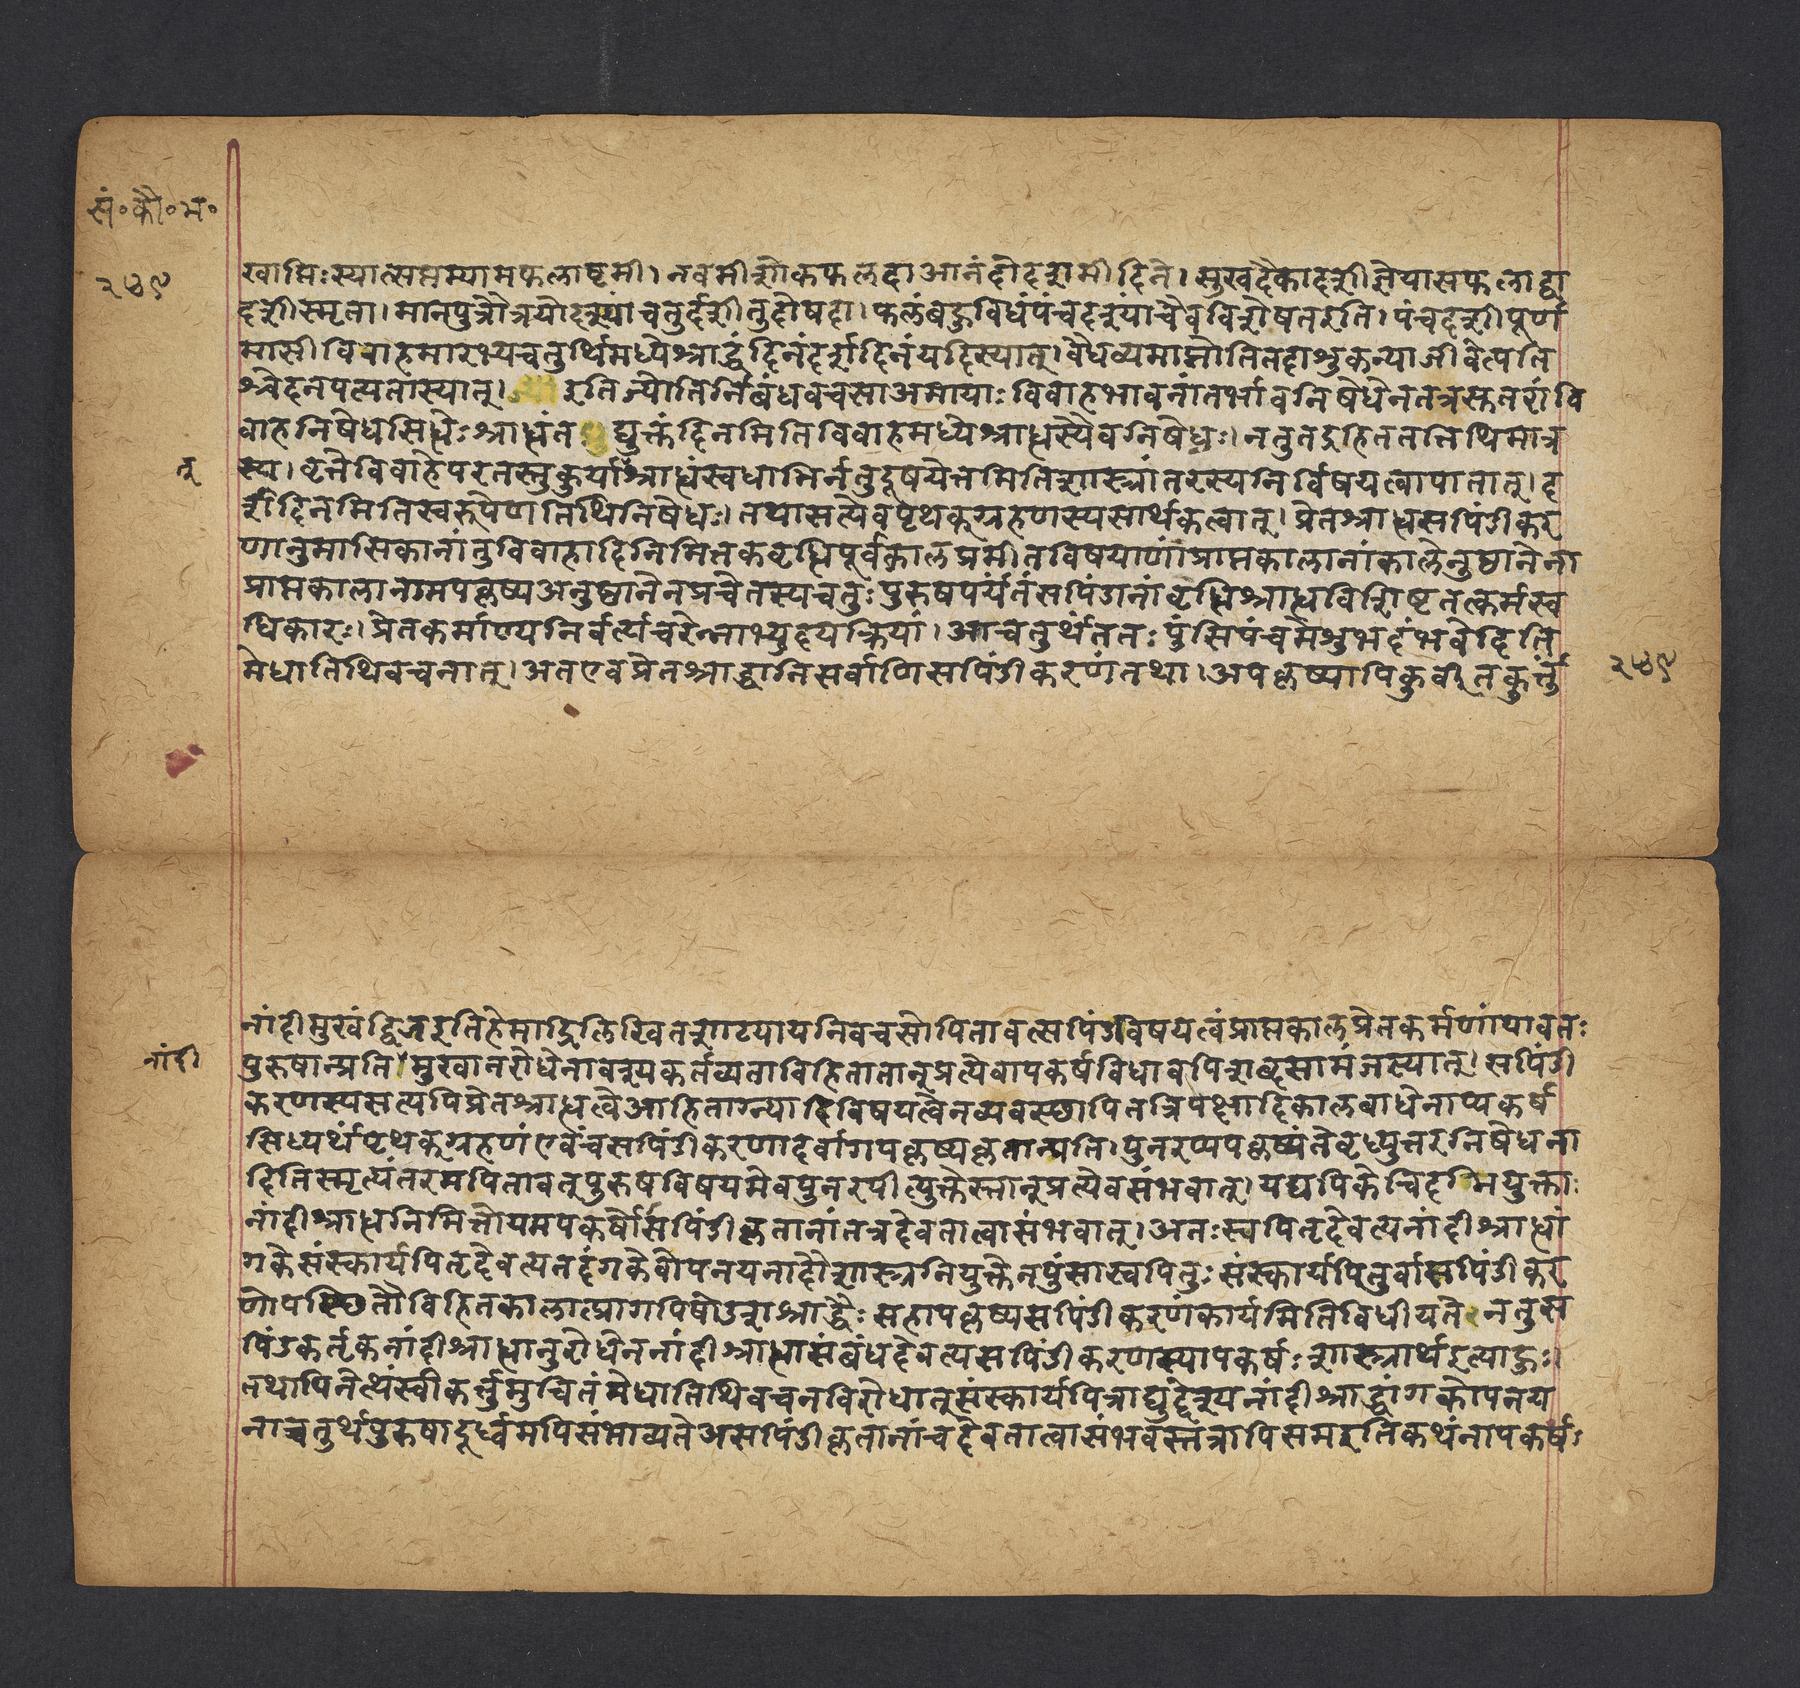 सं॰ कौ॰ म॰
२७९
खाप्तिःस्यात्सप्तम्यामफलाष्टमी। नवमीशोकफलदाआनंदोदशमीदिने। सुखदैकादशीज्ञेयासफलाद्वा
दशीस्मृता। मानपुत्रौत्रयोदश्यांचतुर्दशीतुदोषदा। फलंबहुविधंपंचदश्यांचैवविशेषतइति। पंचदशीपूर्ण
मासी विवाहमारभ्यचतुर्थिमध्येश्राद्धंदिनंदर्शदिनंयदिस्यात्। वैधव्यमाप्नोतितदाशुकन्याजीवेत्पति
श्चेदनपत्यतास्यात्। इतिज्योतिर्निबंधवचसाअमायाः विवाहभावनांतर्भावनिषेधेनतत्रस्तुतरांवि
वाहनिषेधसिध्धेः श्राध्धंत द्युक्तंदिनमितिविवाहमध्येश्राध्धस्यैवनिषेधः। नतुतद्रहिततत्तिथिमात्र
स्य। वृत्तेविवाहेपरतस्तुकुर्याच्छ्राध्धंस्वधाभिर्नतुदूषयेत्तमितिशास्त्रांतरस्यनिर्विषयत्वापातात्। द
र्शदिनमितिस्वरुपेणतिथिनिषेधः। तथासत्येवपृथक्ग्रहणस्यसार्थकत्वात्। प्रेतश्राध्धसपिंडीकर
णानुमासिकानांतुविवाहादिनिमित्तकवृध्धिपूर्वकालप्रमीतविषयाणांप्राप्तकालानांकालेनुष्ठानेना
प्राप्तकालानामपकृष्यअनुष्ठानेनप्रचेतस्यचतुः पुरुषपर्यंतंसपिंडानांवृध्धिश्राध्धविशिष्टतत्कर्मस्व
धिकारः। प्रेतकर्माण्यनिर्वर्त्यचरेन्नाभ्युदयक्रियां। आचतुर्थंततः पुंसिपंचमेशुभदंभवेदिति
मेधातिथिवचनात्। अतएवप्रेतश्राद्धानिसर्वाणिसपिंडीकरणंतथा। अपकृष्यापिकुर्वीतकर्त्तुं
२७९
नांदीमुखंद्विजइतिहेमाद्रिलिखितशाट्यायनिवचसोपितावत्सपिंडविषयत्वंप्राप्तकालप्रेतकर्मणांयावतः
नांदी
पुरुषान्प्रति मुखानरोधेनावश्यकर्तव्यताविहितातान्प्रत्येवापकर्षविधावपिशब्दसामंजस्यात्। सपिंडी
करणस्यसत्यपिप्रेतश्राध्धत्वेआहिताग्न्यादिविषयत्वेनव्यवस्छापितत्रिपक्षादिकालबाधेनाप्यकर्ष
सिध्यर्थंपृथक्ग्रहणंएवंचसपिंडीकरणादर्वागपकृष्यकृतान्प्रति। पुनरप्यपकृष्यंतेवृध्युत्तरनिषेधना
दितिस्मृत्यंतरमपितावत्पुरुषविषयमेवपुनरपीत्युक्तेस्तान्प्रत्येवसंभवात्। यद्यपिकेचिदग्नियुक्ताः
नांदीश्राधनिमित्तोयमपकर्षोसपिंडीकृतानांतत्रदेवतात्वासंभवात्। अतःस्वपितृदेवत्यनांदीश्राधां
गकेसंस्कार्यपितृदेवत्यतदंगकेवोपनयनादौशास्त्रनियुक्तेनपुंसास्वपितुः संस्कार्यपितुर्वासपिंडीकर
णोपस्छितौविहितकालात्प्रागपिषोडशश्राद्धैः सहापकृष्यसपिंडीकरणंकार्यमितिविधीयते नतुस
पिंडकर्तृकनांदीश्राधानुरोधेननांदीश्राधासंबंधदेवत्यसपिंडीकरणस्यापकर्षः शास्त्रार्थइत्याहुः।
तथापिनेत्थंस्वीकर्त्तुमुचितंमेधातिथिवचनविरोधात्संस्कार्यपित्राद्युद्देश्यनांदीश्राद्धांगकोपनय
नाच्चतुर्थपुरुषादूर्ध्वमपिसंभाव्यतेअसपिंडीकृतानांचदेवतात्वासंभवस्तत्रापिसमइतिकथंनापकर्षः